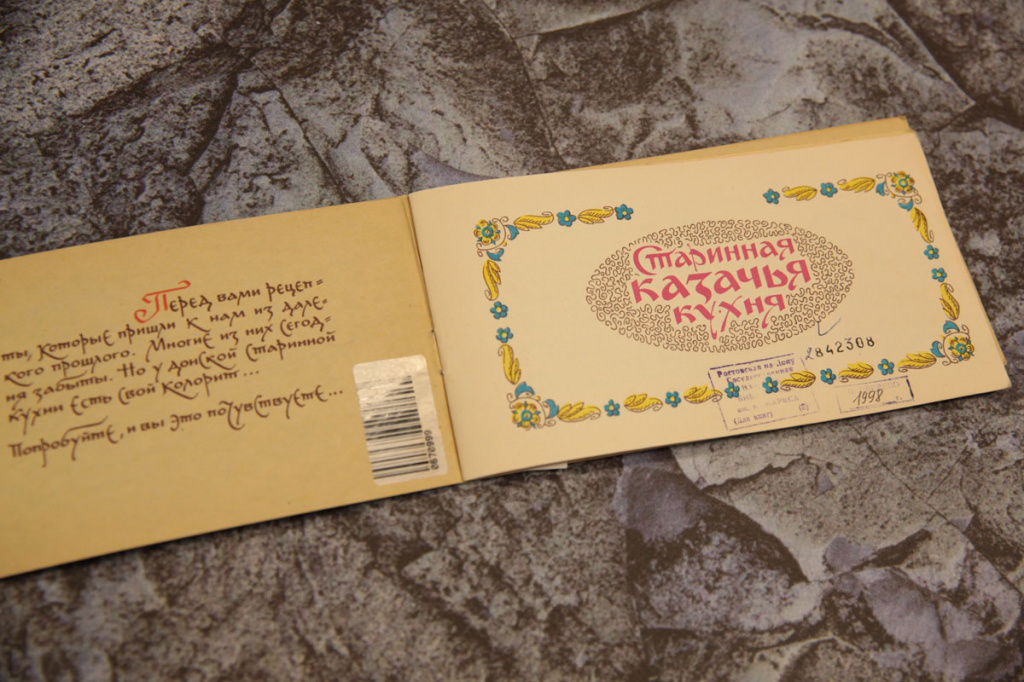 Перед вами рецеп=
ты, которые пришли к нам из дале-
кого прошлого. Многие из них сегод-
ня забыты. Но у донской старинной
кухни есть свой колорит...
Попробуйте, и вы это почувствуете...
0670999
Старинная
казачья
кухня
2842308
Ростовская на Дону
Государственная
1998 г.